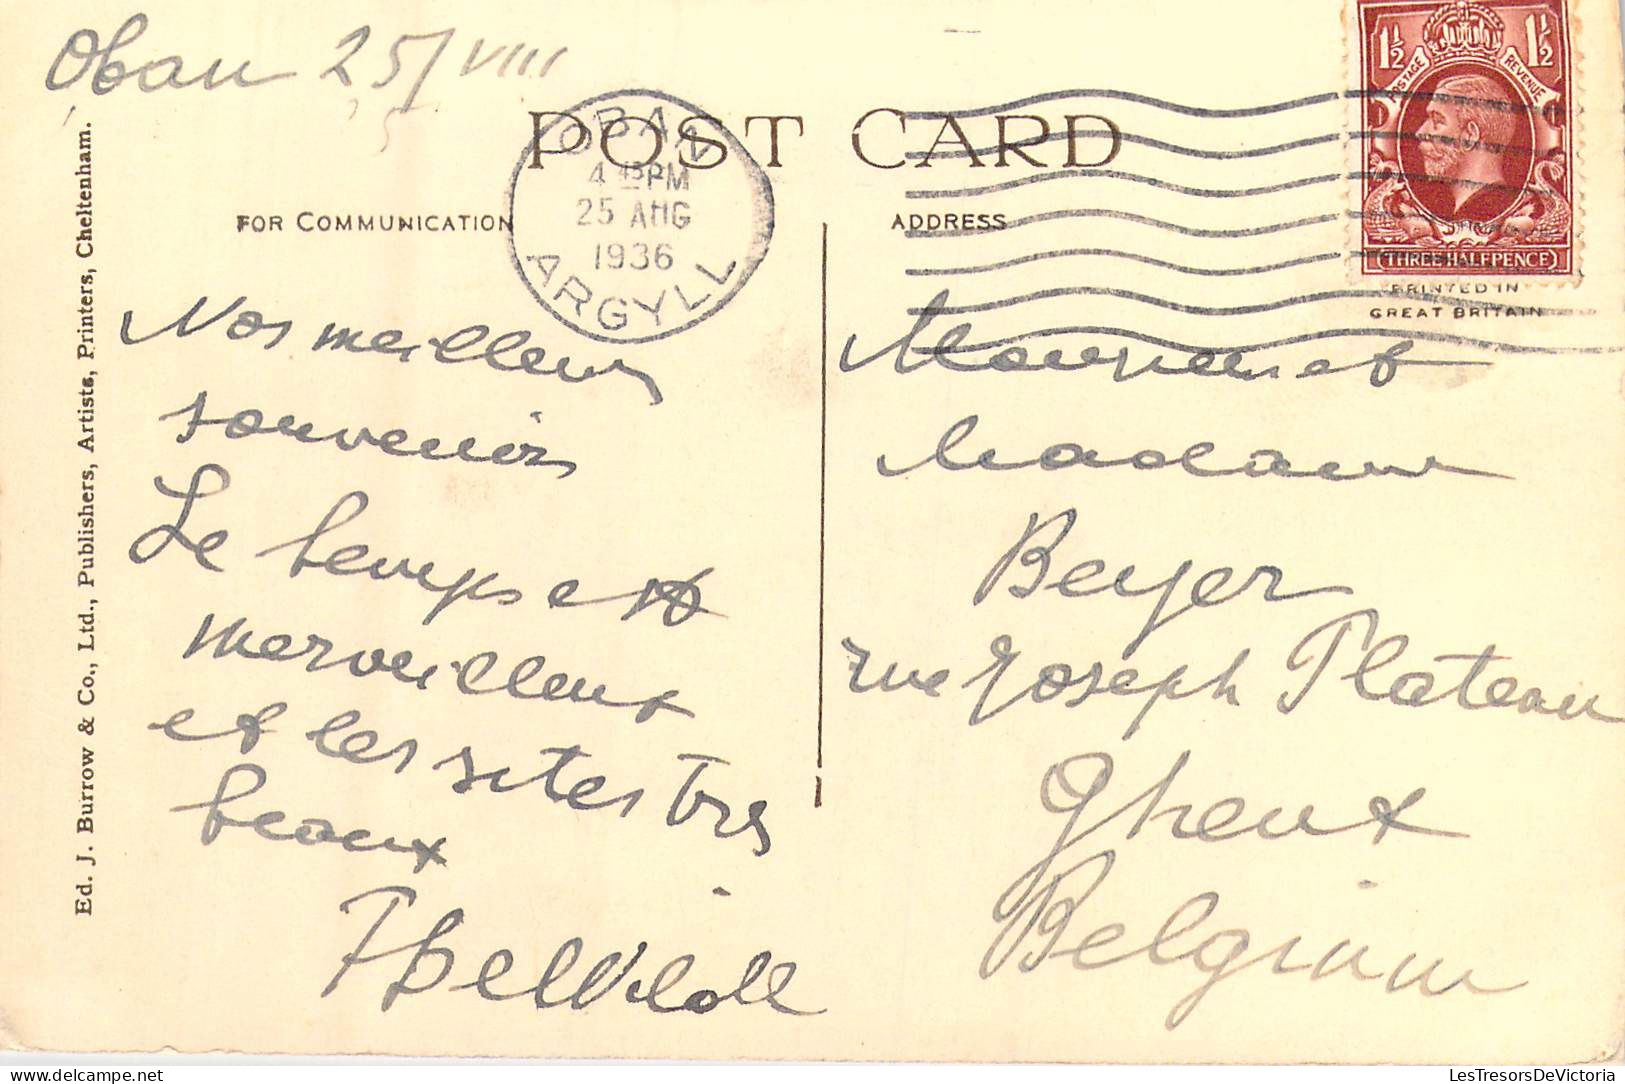 Oban 25/VIII
POST CARD
FOR COMMUNICATION
ADDRESS
OBAN
4 PM
25 AUG
1936
ARGYLL
1½ 1½
POSTAGE REVENUE
THREE HALFPENCE
PRINTED IN
GREAT BRITAIN
Ed. J. Burrow & Co., Ltd., Publishers, Artists, Printers, Cheltenham.
Nos meilleurs
souvenirs
Le temps est
merveilleux
et les sites très
beaux
Monsieur et
Madame
Beyer
rue Joseph Plateau
Ghent
Belgium
LesTresorsDeVictoria.com